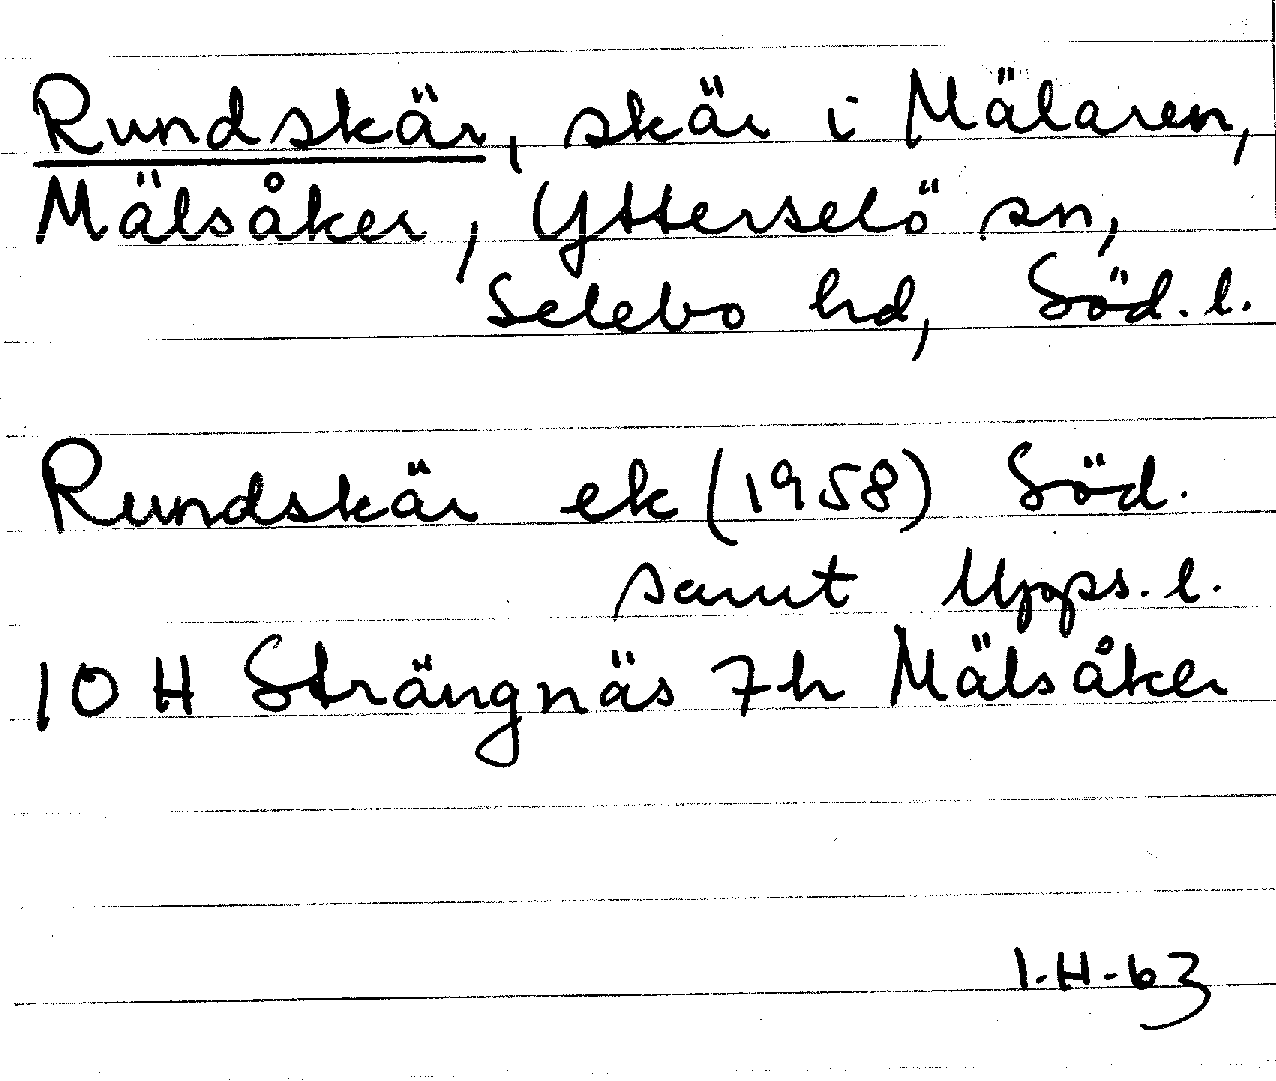 Rundskär, skär i Mälaren,
Mälsåker, Ytterselö sn,
Selebo hd, Söd. l.
Rundskär ek (1958) Söd.
samt Upps. l.
10 H Strängnäs 7h Mälsåker
I.H-63